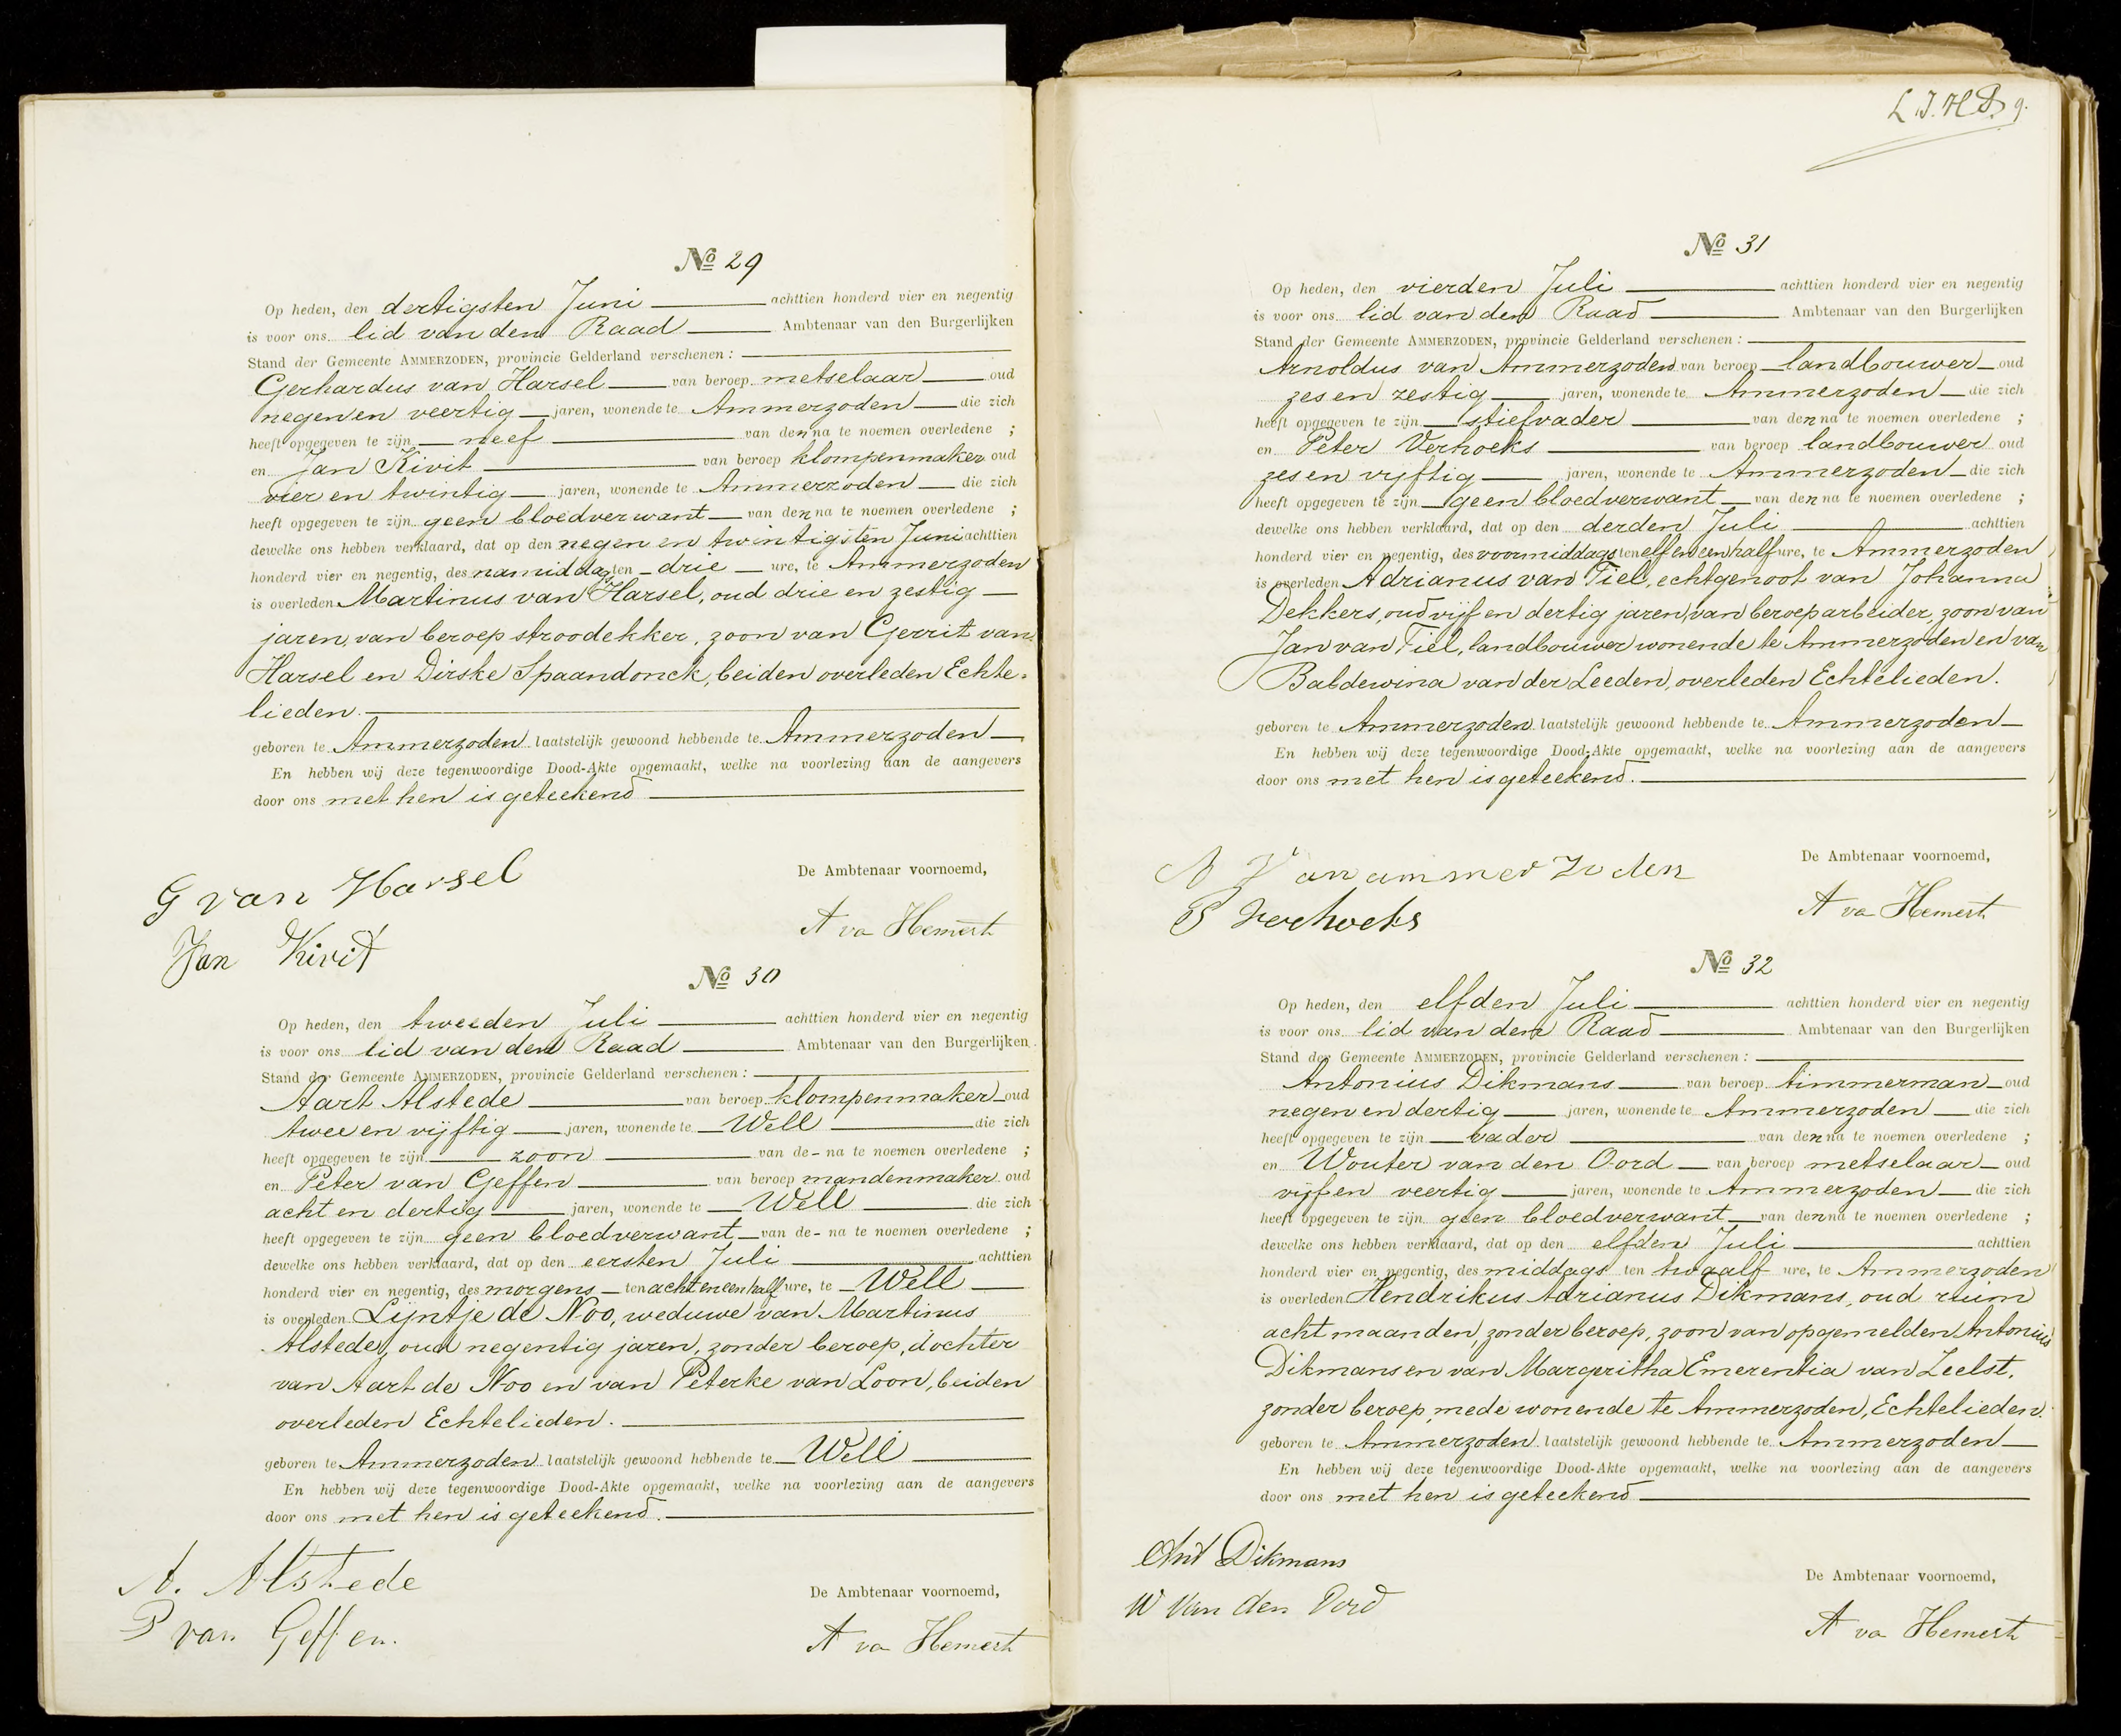 Nº 29
Op heden, den dertigsten Juni achttien honderd vier en negentig
is voor ons lid van den Raad Ambtenaar van den Burgerlijken
Stand der Gemeente AMMERZODEN, provincie Gelderland verschenen :
Gerhardus van Harsel van beroep metselaar oud
negen en veertig jaren, wonende te Ammerzoden die zich
heeft opgegeven te zijn neef van den na te noemen overledene ;
en Jan Kivit van beroep klompenmaker oud
vier en twintig jaren, wonende te Ammerzoden die zich
heeft opgegeven te zijn geen bloedverwant van den na te noemen overledene ;
dewelke ons hebben verklaard, dat op den negen en twintigsten Juni achttien
honderd vier en negentig, des namiddags ten drie ure, te Ammerzoden
is overleden Martinus van Harsel, oud drie en zestig
jaren, van beroep stroodekker, zoon van Gerrit van
Harsel en Dirske Spaandonck, beiden overleden Echte-
lieden.
geboren te Ammerzoden laatstelijk gewoond hebbende te Ammerzoden
En hebben wij deze tegenwoordige Dood-Akte opgemaakt, welke na voorlezing aan de aangevers
door ons met hen is geteekend
De Ambtenaar voornoemd,
G van Harsel
Jan Kivit
A va Hemert
Nº 30
Op heden, den tweeden Juli achttien honderd vier en negentig
is voor ons lid van den Raad Ambtenaar van den Burgerlijken
Stand der Gemeente AMMERZODEN, provincie Gelderland verschenen :
Aart Alstede van beroep klompenmaker oud
twee en vijftig jaren, wonende te Well die zich
heeft opgegeven te zijn zoon van de - na te noemen overledene ;
en Peter van Geffen van beroep mandenmaker oud
acht en dertig jaren, wonende te Well die zich
heeft opgegeven te zijn geen bloedverwant van de - na te noemen overledene ;
dewelke ons hebben verklaard, dat op den eersten Juli achttien
honderd vier en negentig, des morgens ten acht en een half ure, te Well
is overleden Lijntje de Noo, weduwe van Martinus
Alstede, oud negentig jaren, zonder beroep, dochter
van Aart de Noo en van Peterke van Loon, beiden
overleden Echtelieden.
geboren te Ammerzoden laatstelijk gewoond hebbende te Well
En hebben wij deze tegenwoordige Dood-Akte opgemaakt, welke na voorlezing aan de aangevers
door ons met hen is geteekend.
A. Alstede
De Ambtenaar voornoemd,
P van Geffen.
A va Hemert
9.
Nº 31
Op heden, den vierden Juli achttien honderd vier en negentig
is voor ons lid van den Raad Ambtenaar van den Burgerlijken
Stand der Gemeente AMMERZODEN, provincie Gelderland verschenen :
Arnoldus van Ammerzoden van beroep landbouwer oud
zes en zestig jaren, wonende te Ammerzoden die zich
heeft opgegeven te zijn stiefvader van den na te noemen overledene ;
en Peter Verhoeks van beroep landbouwer oud
zes en vijftig jaren, wonende te Ammerzoden die zich
heeft opgegeven te zijn geen bloedverwant van den na te noemen overledene ;
dewelke ons hebben verklaard, dat op den derden Juli achttien
honderd vier en negentig, des voormiddags ten elf en een half ure, te Ammerzoden
is overleden Adrianus van Tiel, echtgenoot van Johanna
Dekkers, oud vijf en dertig jaren, van beroep arbeider, zoon van
Jan van Tiel, landbouwer wonende te Ammerzoden en van
Baldewina van der Leeden, overleden Echtelieden.
geboren te Ammerzoden laatstelijk gewoond hebbende te Ammerzoden
En hebben wij deze tegenwoordige Dood-Akte opgemaakt, welke na voorlezing aan de aangevers
door ons met hen is geteekend.
De Ambtenaar voornoemd,
A Van ammerzoden
P Verhoeks
A va Hemert
Nº 32
Op heden, den elfden Juli achttien honderd vier en negentig
is voor ons lid van den Raad Ambtenaar van den Burgerlijken
Stand der Gemeente AMMERZODEN, provincie Gelderland verschenen :
Antonius Dikmans van beroep timmerman oud
negen en dertig jaren, wonende te Ammerzoden die zich
heeft opgegeven te zijn vader van den na te noemen overledene ;
en Wouter van den Oord van beroep metselaar oud
vijf en veertig jaren, wonende te Ammerzoden die zich
heeft opgegeven te zijn geen bloedverwant van den na te noemen overledene ;
dewelke ons hebben verklaard, dat op den elfden Juli achttien
honderd vier en negentig, des middags ten twaalf ure, te Ammerzoden
is overleden Hendrikus Adrianus Dikmans, oud ruim
acht maanden, zonder beroep, zoon van opgemelden Antonius
Dikmans en van Margritha Emerentia van Zeelst,
zonder beroep, mede wonende te Ammerzoden, Echtelieden.
geboren te Ammerzoden laatstelijk gewoond hebbende te Ammerzoden
En hebben wij deze tegenwoordige Dood-Akte opgemaakt, welke na voorlezing aan de aangevers
door ons met hen is geteekend
Ant Dikmans
De Ambtenaar voornoemd,
W van den Oord
A va Hemert